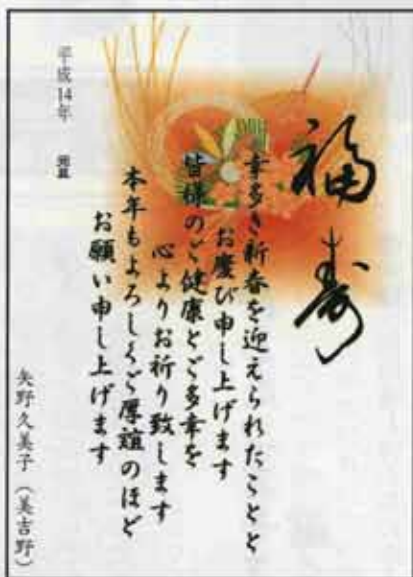 福寿
幸多き新春を迎えられたことと
お慶び申し上げます
皆様のご健康とご多幸を
心よりお祈り致します
本年もよろしくご厚誼のほど
お願い申し上げます
平成14年 元旦
矢野久美子（美吉野）